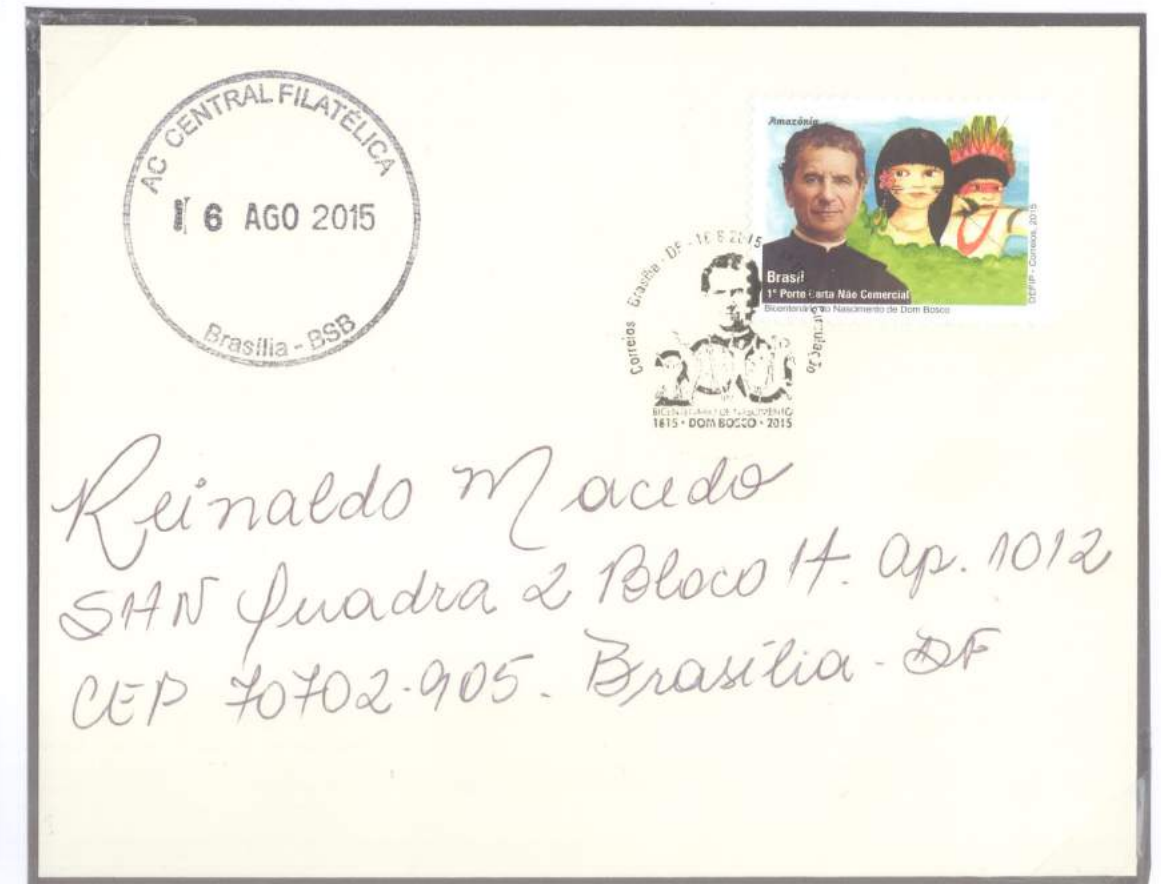 AC CENTRAL FILATÉLICA
6 AGO 2015
Brasília - BSB
Amazônia
Brasil
1º Porte Carta Não Comercial
Bicentenário do Nascimento de Dom Bosco
DEFIP - Correios, 2015
Correios Brasília - DF - 16.8.2015
Circulação
200
BICENTENÁRIO DE NASCIMENTO
1815 • DOM BOSCO • 2015
Reinaldo Macedo
SHN Quadra 2 Bloco H. Ap. 1012
CEP 70702-905. Brasília - DF